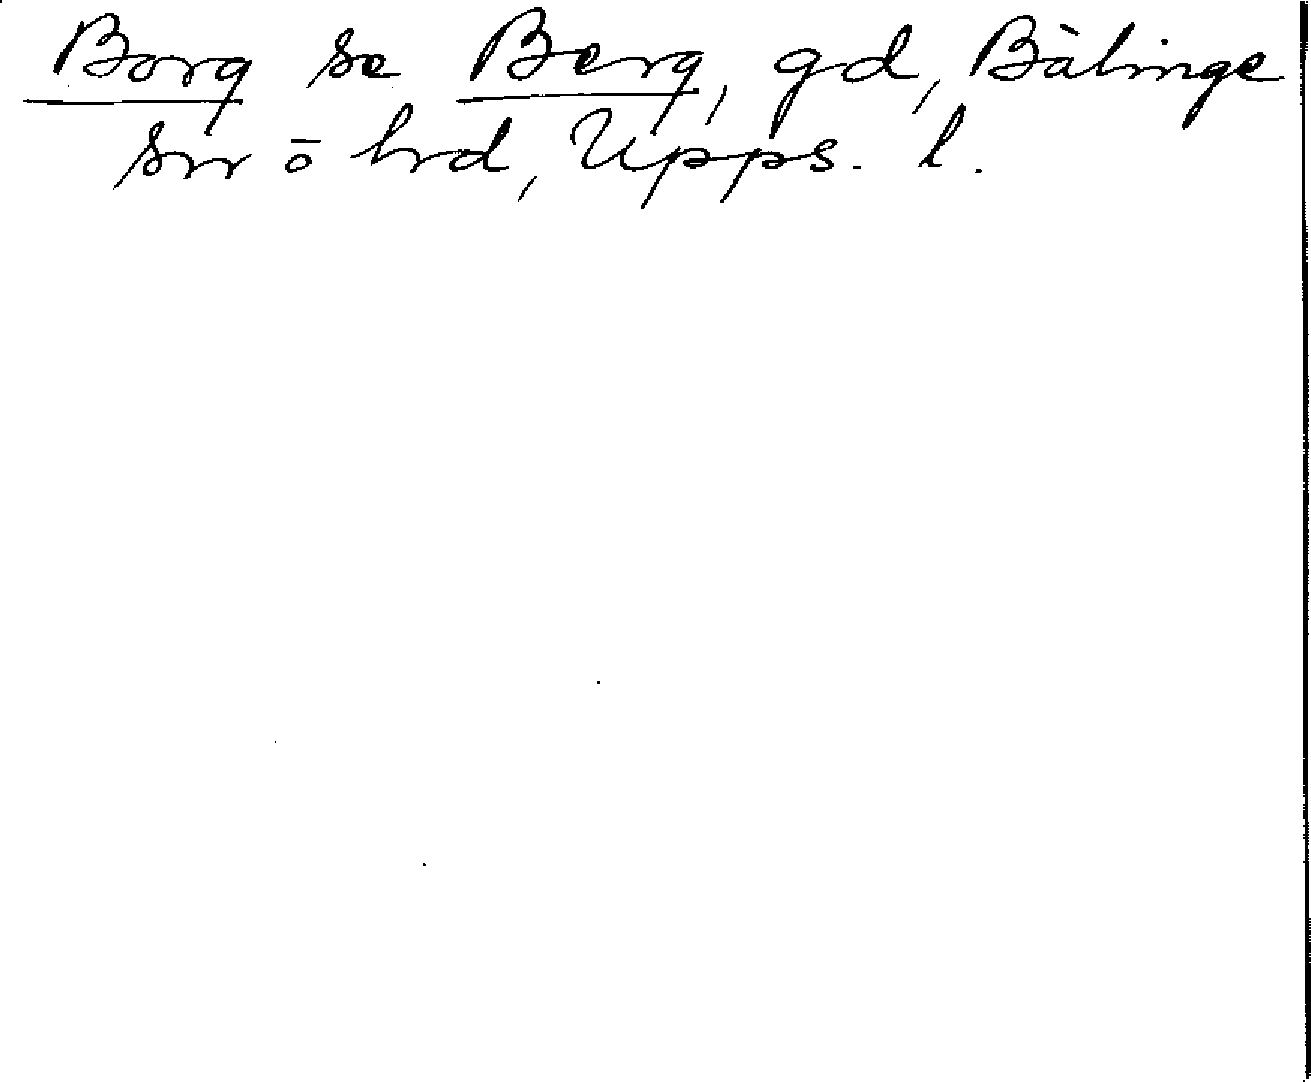 Borg se Berg, gd, Bälinge
sn ō hrd, Upps. l.